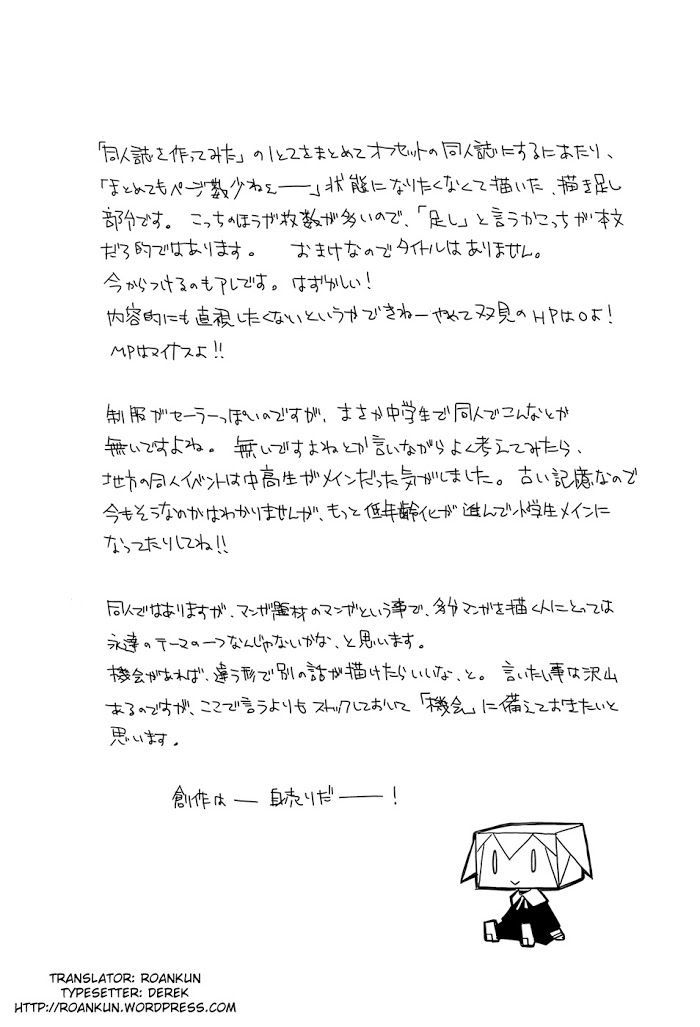 「同人誌を作ってみた」の1と2をまとめてオフセットの同人誌にするにあたり、
「まとめてもページ数少ねぇ――」状態になりたくなくて描いた、描き足し
部分です。こっちのほうが枚数が多いので、「足し」と言うかこっちが本文
だろ的ではあります。 おまけなのでタイトルはありません。
今からつけるのもアレです。はずかしい!
内容的にも直視したくないというかできねーやめて双見のHPは0よ!
MPはマイナスよ!!
制服がセーラーっぽいのですが、まさか中学生で同人でこんなとか
無いですよね。無いですよねとか言いながらよく考えてみたら、
地方の同人イベントは中高生がメインだった気がしました。古い記憶なので
今もそうなのかはわかりませんが、もっと低年齢化が進んで小学生メインに
なってたりしてね!!
同人ではありますが、マンガ題材のマンガという事で、多分マンガを描く人にとっては
永遠のテーマの一つなんじゃないかな、と思います。
機会があれば、違う形で別の話が描けたらいいな、と。言いたい事は沢山
あるのですが、ここで言うよりもストックしておいて「機会」に備えておきたいと
思います。
創作は― 身売りだ――!
TRANSLATOR: ROANKUN
TYPESETTER: DEREK
HTTP://ROANKUN.WORDPRESS.COM